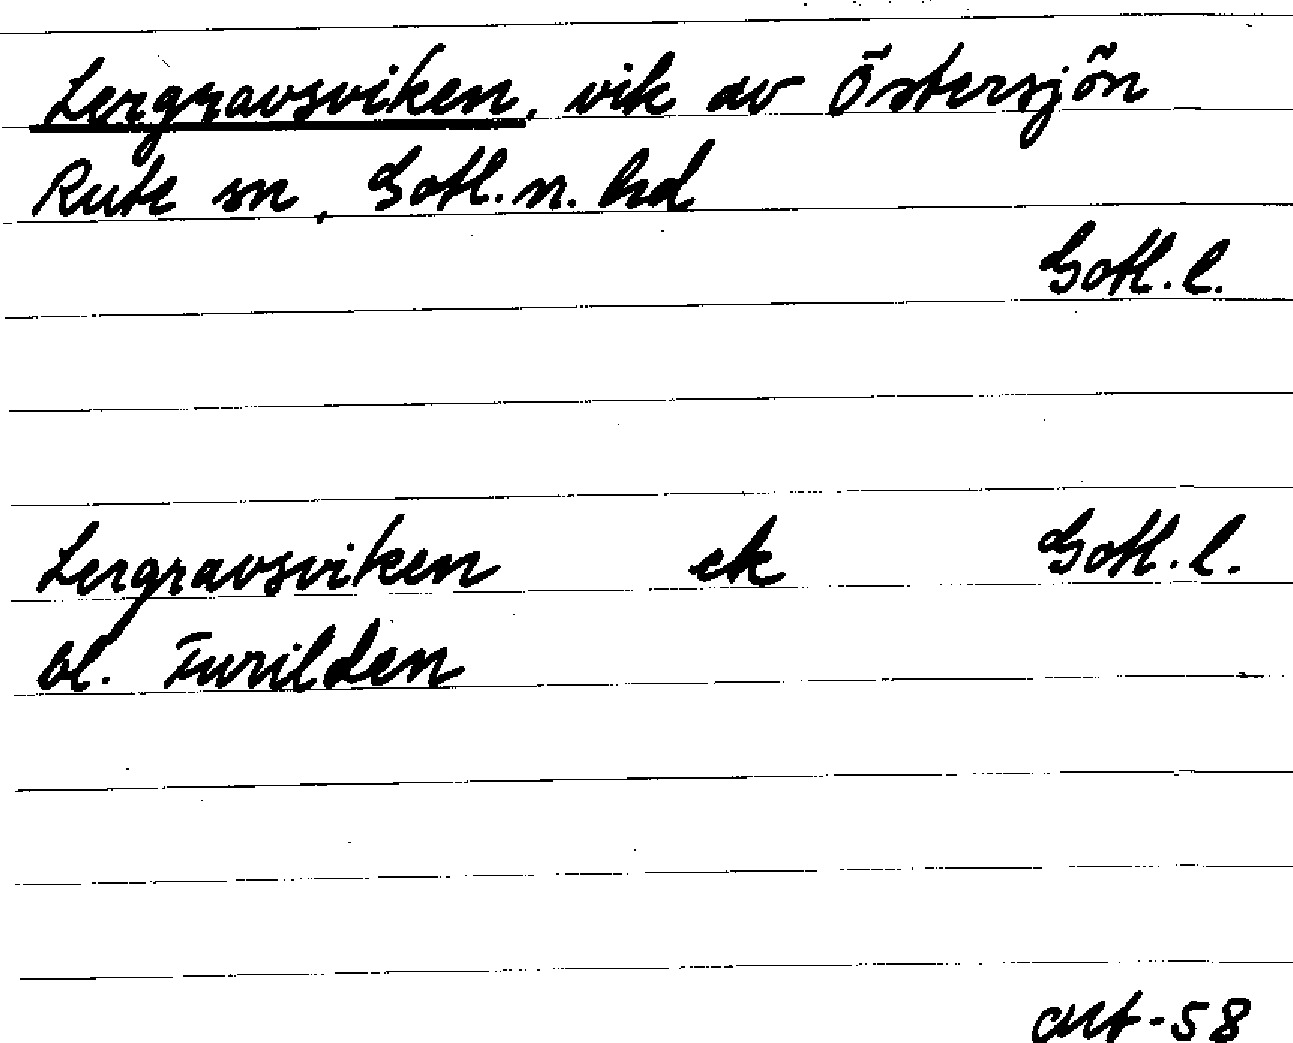 Lergravsviken, vik av Östersjön
Rute sn, Gotl. n. hd
Gotl. l.
Lergravsviken ek Gotl. l.
bl. Furilden
ant-58